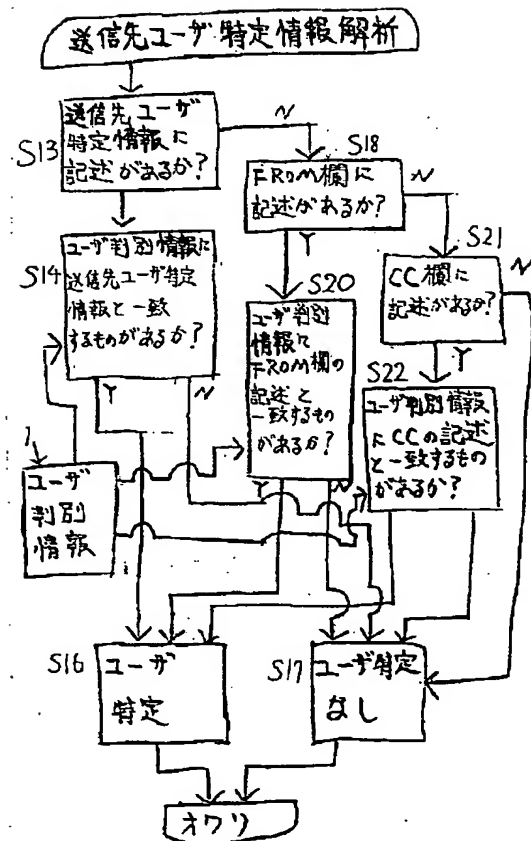 送信先ユーザ特定情報解析
S13
送信先ユーザ
特定情報に
記述があるか?
N
S18
FROM欄に
記述があるか?
N
Y
S21
CC欄に
記述があるか?
N
Y
S14
ユーザ判別情報に
送信先ユーザ特定
情報と一致
するものがあるか?
Y
N
S20
ユーザ判別
情報に
FROM欄の
記述と
一致するもの
があるか?
Y
N
S22
ユーザ判別情報
にCCの記述
と一致するもの
があるか?
1
ユーザ
判別
情報
S16
ユーザ
特定
S17
ユーザ特定
なし
オワリ